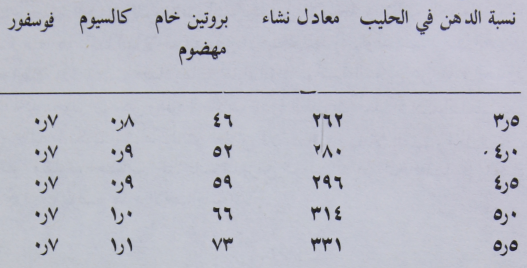 نسبة الدهن في الحليب معادل نشاء بروتين خام كالسيوم فوسفور
مهضوم
٣٫٥ ٢٦٢ ٤٦ ٠٫٨ ٠٫٧
٤٫٠ ٢٨٠ ٥٢ ٠٫٩ ٠٫٧
٤٫٥ ٢٩٦ ٥٩ ٠٫٩ ٠٫٧
٥٫٠ ٣١٤ ٦٦ ١٫٠ ٠٫٧
٥٫٥ ٣٣١ ٧٣ ١٫١ ٠٫٧